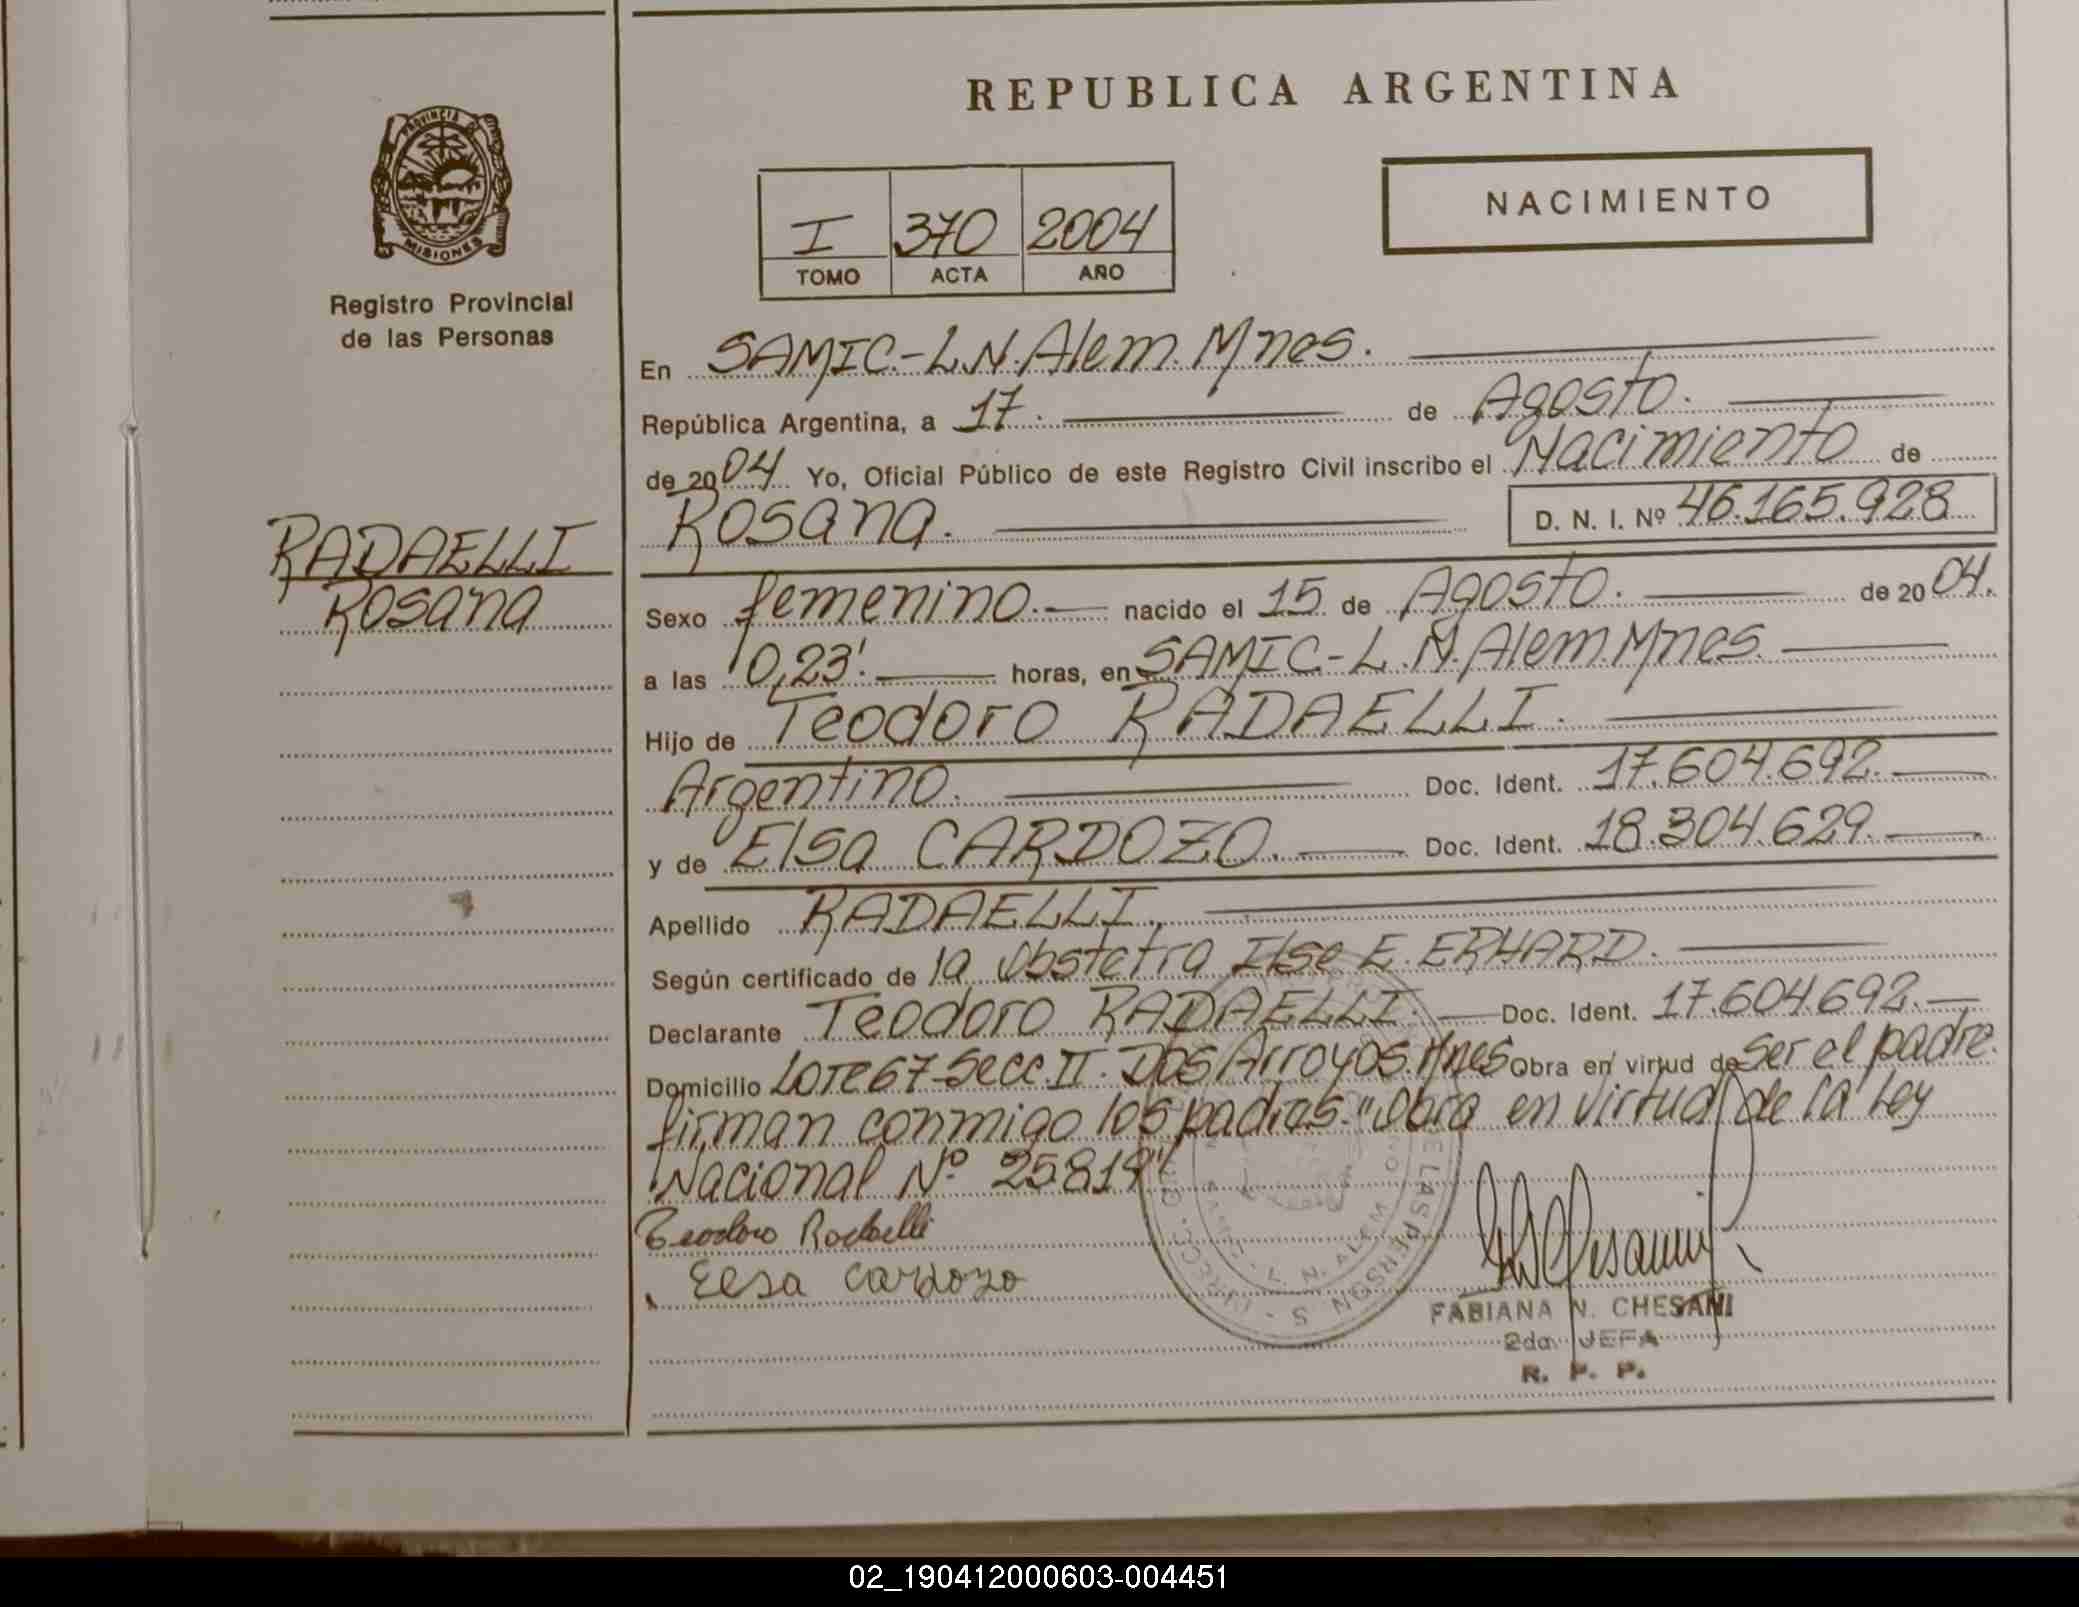 REPUBLICA ARGENTINA
NACIMIENTO
PROVINCIA DE
MISIONES
Registro Provincial
de las Personas
I 370 2004
TOMO ACTA AÑO
RADAELLI
Rosana
En SAMIC.-L.N.Alem.Mnes.
República Argentina, a 17. de Agosto.
de 2004 Yo, Oficial Público de este Registro Civil inscribo el Nacimiento de
Rosana. D. N. I. Nº 46.165.928
Sexo femenino.- nacido el 15 de Agosto. de 2004.
a las 10,23'. horas, en SAMIC.-L.N.Alem.Mnes.
Hijo de Teodoro RADAELLI.
Argentino. Doc. Ident. 17.604.692.-
y de Elsa CARDOZO.- Doc. Ident. 18.304.629.-
Apellido RADAELLI.
Según certificado de la Obstetra Ilse E. ERHARD.
Declarante Teodoro RADAELLI.- Doc. Ident. 17.604.692.-
Domicilio Lote 67-Secc.II. Dos Arroyos.Mnes Obra en virtud de ser el padre.
firman conmigo los padres."Obra en virtud de la Ley
Nacional Nº 25819"
Teodoro Radaelli
Elsa Cardozo
FABIANA N. CHESANI
2da. JEFA
R. P. P.
02_190412000603-004451